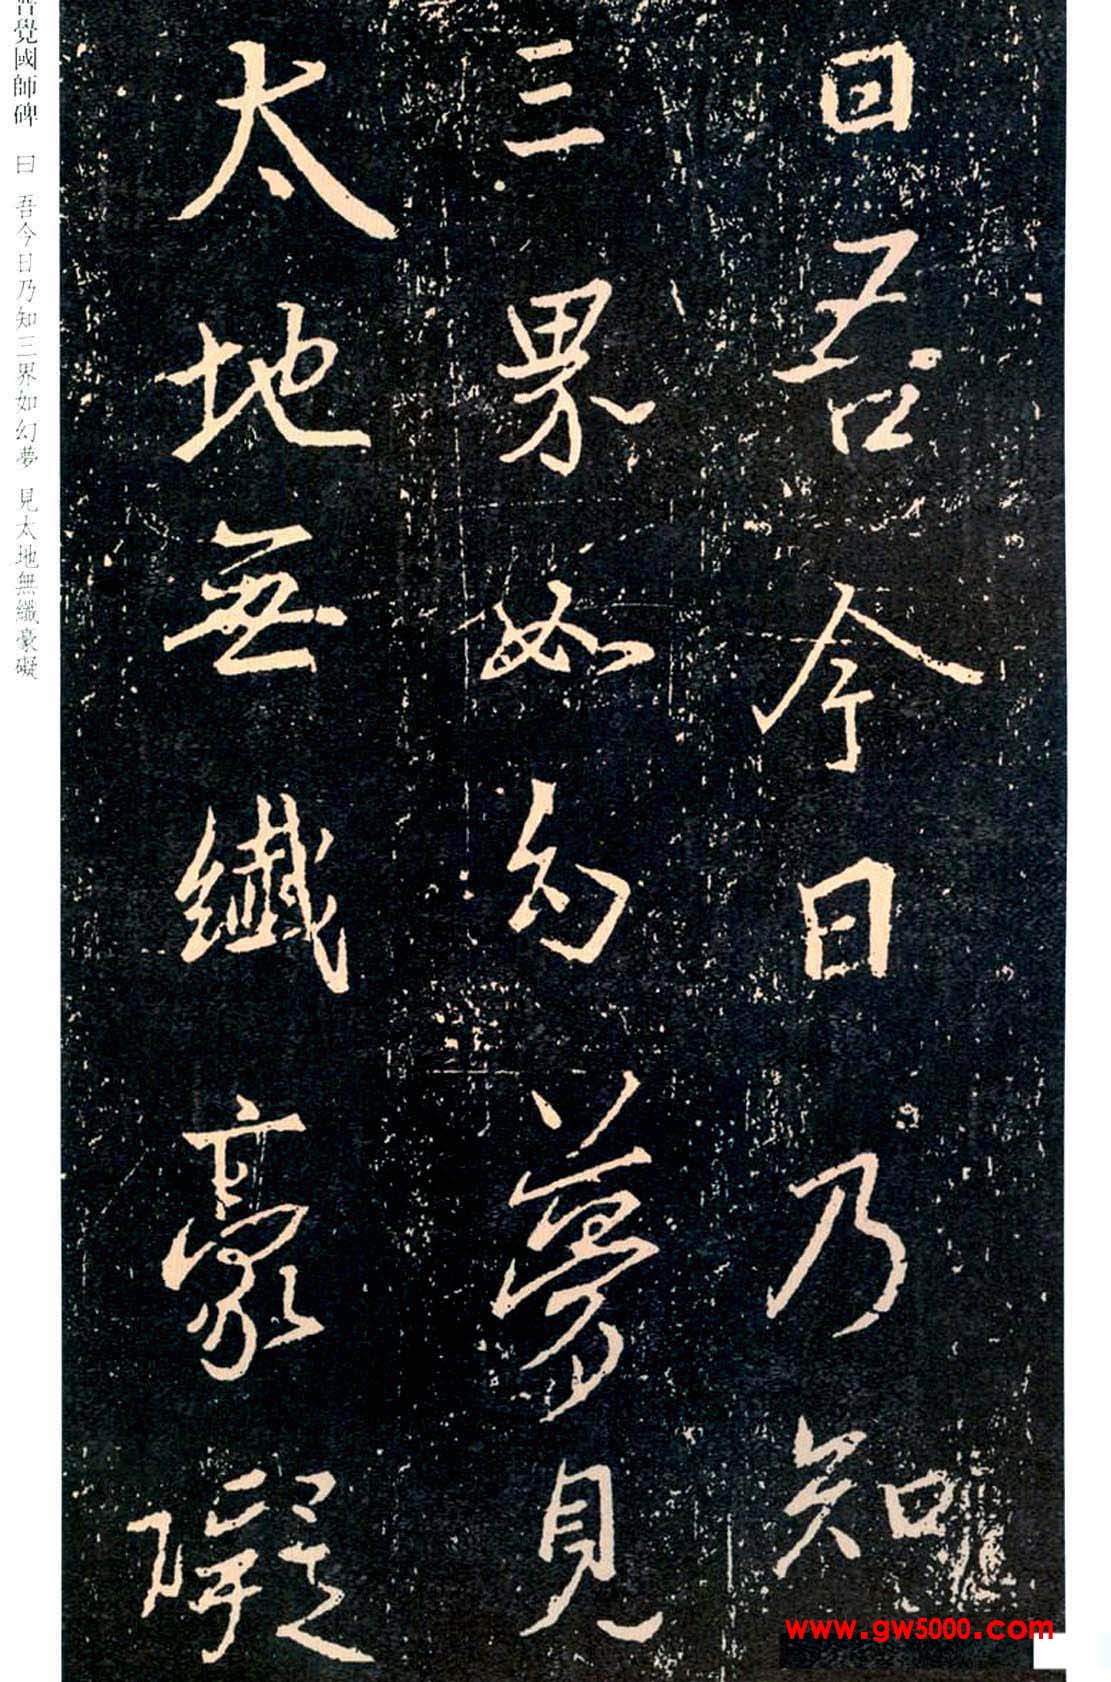 曰吾今日乃知
三界如幻夢見
太地無纖豪礙
普覺國師碑 曰 吾今日乃知三界如幻夢 見太地無纖豪礙
www.gw5000.com